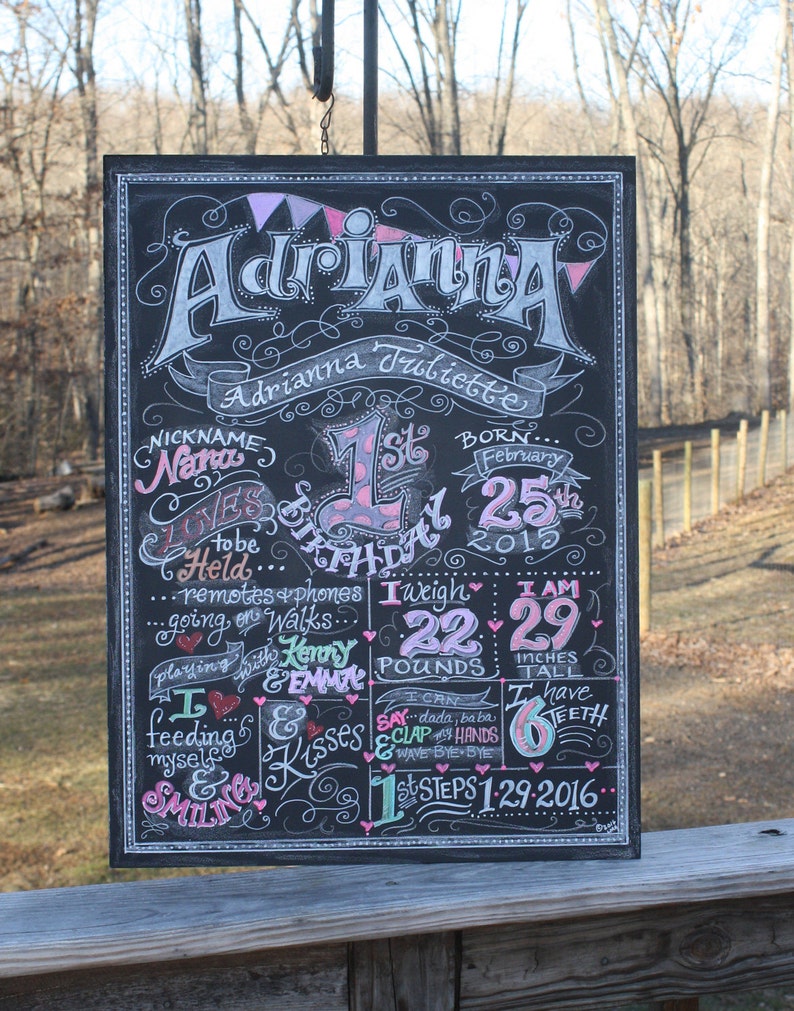 AdriAnnA
Adrianna Juliette
NICKNAME
Nana
LOVES
to be
Held...
...remotes & phones
...going on Walks...
playing with Kenny
& EMMA
I ♥
feeding
myself
&
SMILING
&
Kisses
1st
BIRTHDAY
BORN...
February
25th
2015
I Weigh
22
POUNDS
I AM
29
INCHES
TALL
I CAN
SAY...dada, baba
& CLAP my HANDS
WAVE BYE-BYE
I have
6 TEETH
1st STEPS 1·29·2016...